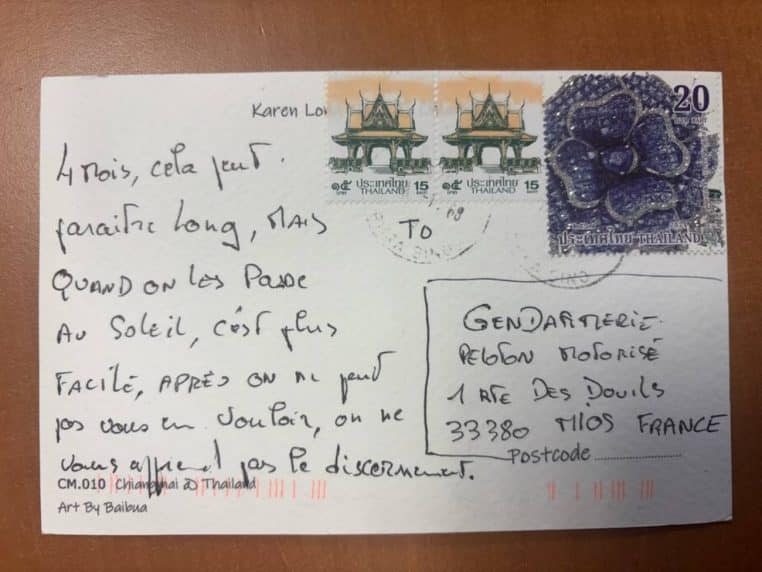 Karen Lo
4 mois, cela peut
paraitre long, mais
QUAND ON LES PASSE
AU SOLEIL, c'est plus
FACILE, APRÈS ON ne peut
pas vous en vouloir, on ne
vous apprend pas le discernement.
CM.010 Chiangmai Thailand
Art By Baibua
๑๕ ประเทศไทย 15
บาท THAILAND BAHT
๑๕ ประเทศไทย 15
บาท THAILAND BAHT
20
ประเทศไทย THAILAND
TO
GENDARMERIE
PELOTON MOTORISÉ
1 RTE DES DOUILS
33380 MIOS FRANCE
Postcode